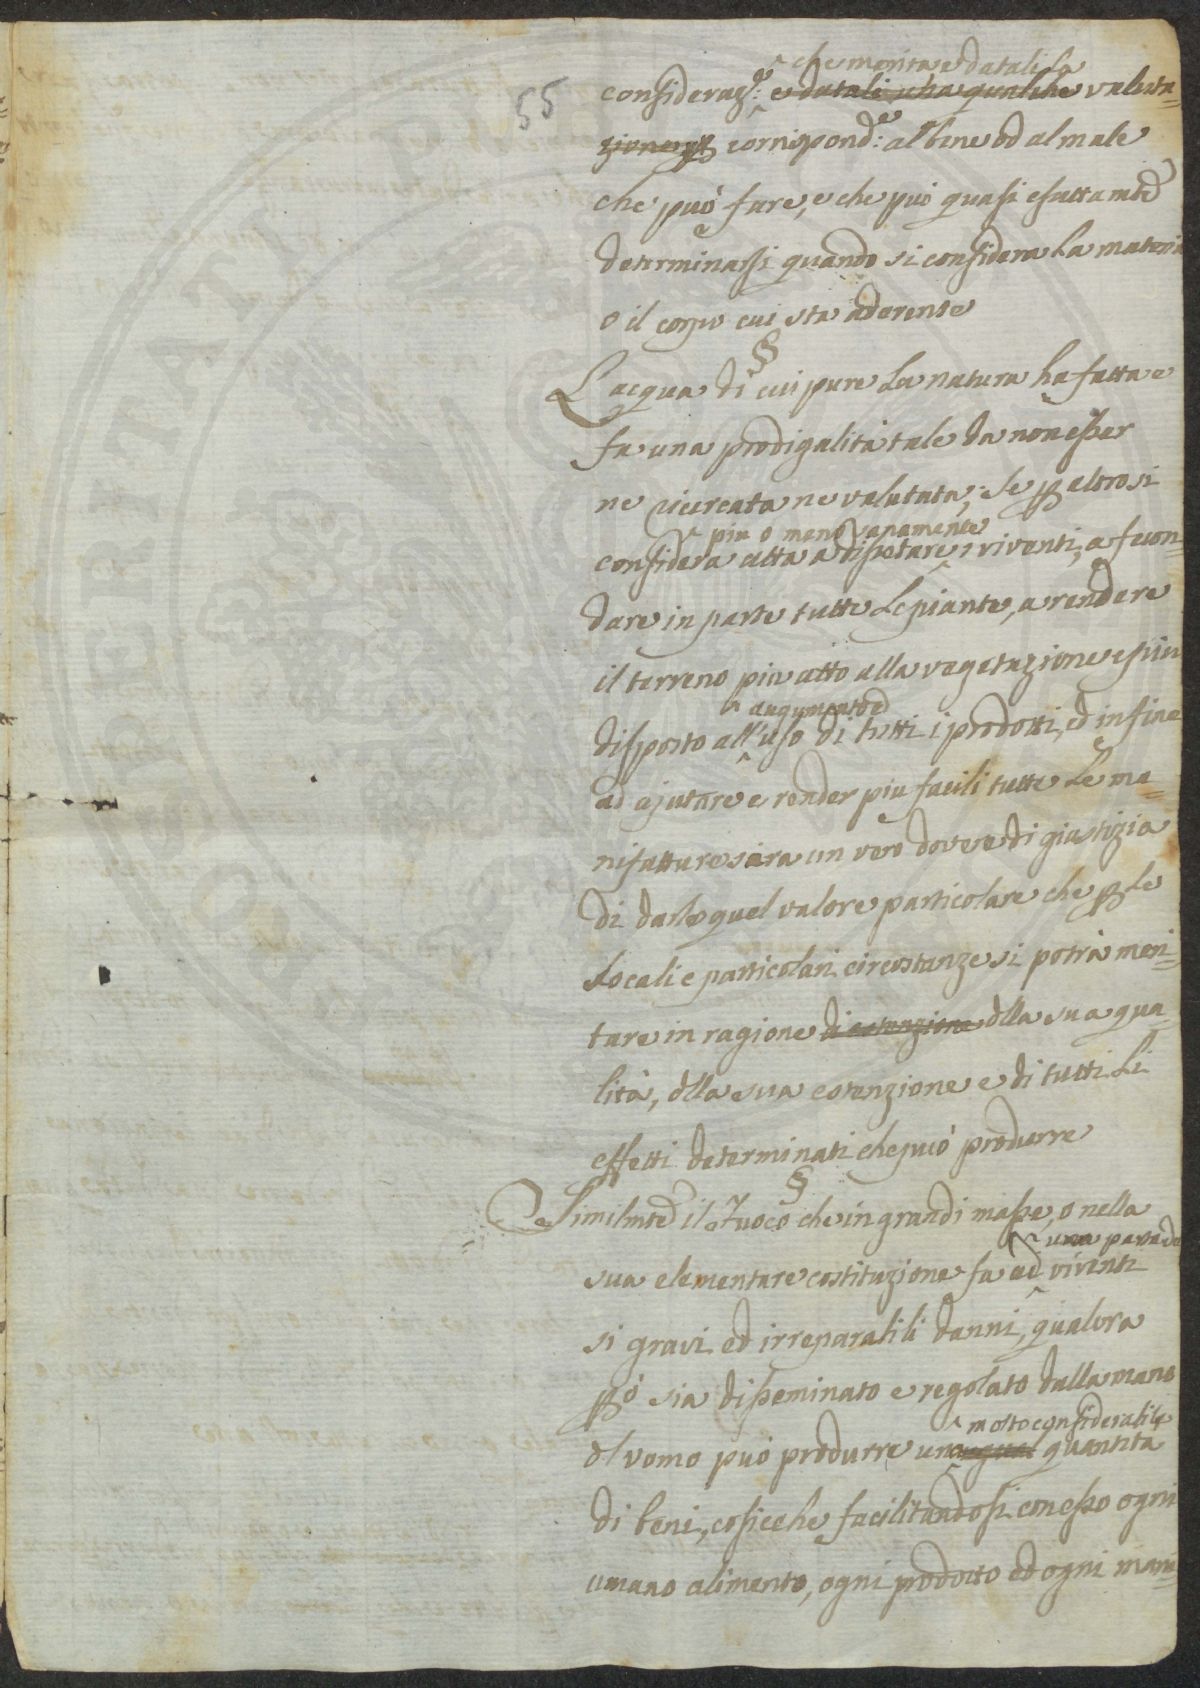 55
che merita e datali la
consideraz.e e datali una qualche valuta=
zione p corrispond.e al bene od al male
che può fare, e che può quasi esattamte
determinarsi quando si considera la materia
o il corpo cui sta aderente
§
L acqua di cui pure la natura ha fatta e
fa una prodigalità tale da non esser
ne ricercata ne valutata; se p altro si
piu o meno sanamente
considera atta a dissetare i viventi, a fecon=
dare in parte tutte le piante, a rendere
il terreno piu atto alla vegetazione e piu
augumento ed
disposto all'uso di tutti i prodotti, ed infine
ad ajutare e render piu facili tutte le ma=
nifatture sara un vero dovere di giustizia
di darle quel valore particolare che p le
locali e particolari circostanze si potrà meri=
tare in ragione di estenzione dlla sua qua=
lità, dlla sua estenzione e di tutti li
effetti determinati che può produrre
§
Similmte il Fuoco che in grandi masse, o nella
una parte de
sua elementare costituzione fa ad viventi
si gravi ed irreparabili danni, qualora
pò sia disseminato e regolato dalla mano
molto considerabile
dl uomo può produrre una quantità
di beni, cosicche facilitandosi con esso ogni
umano alimento, ogni prodotto ed ogni mani=